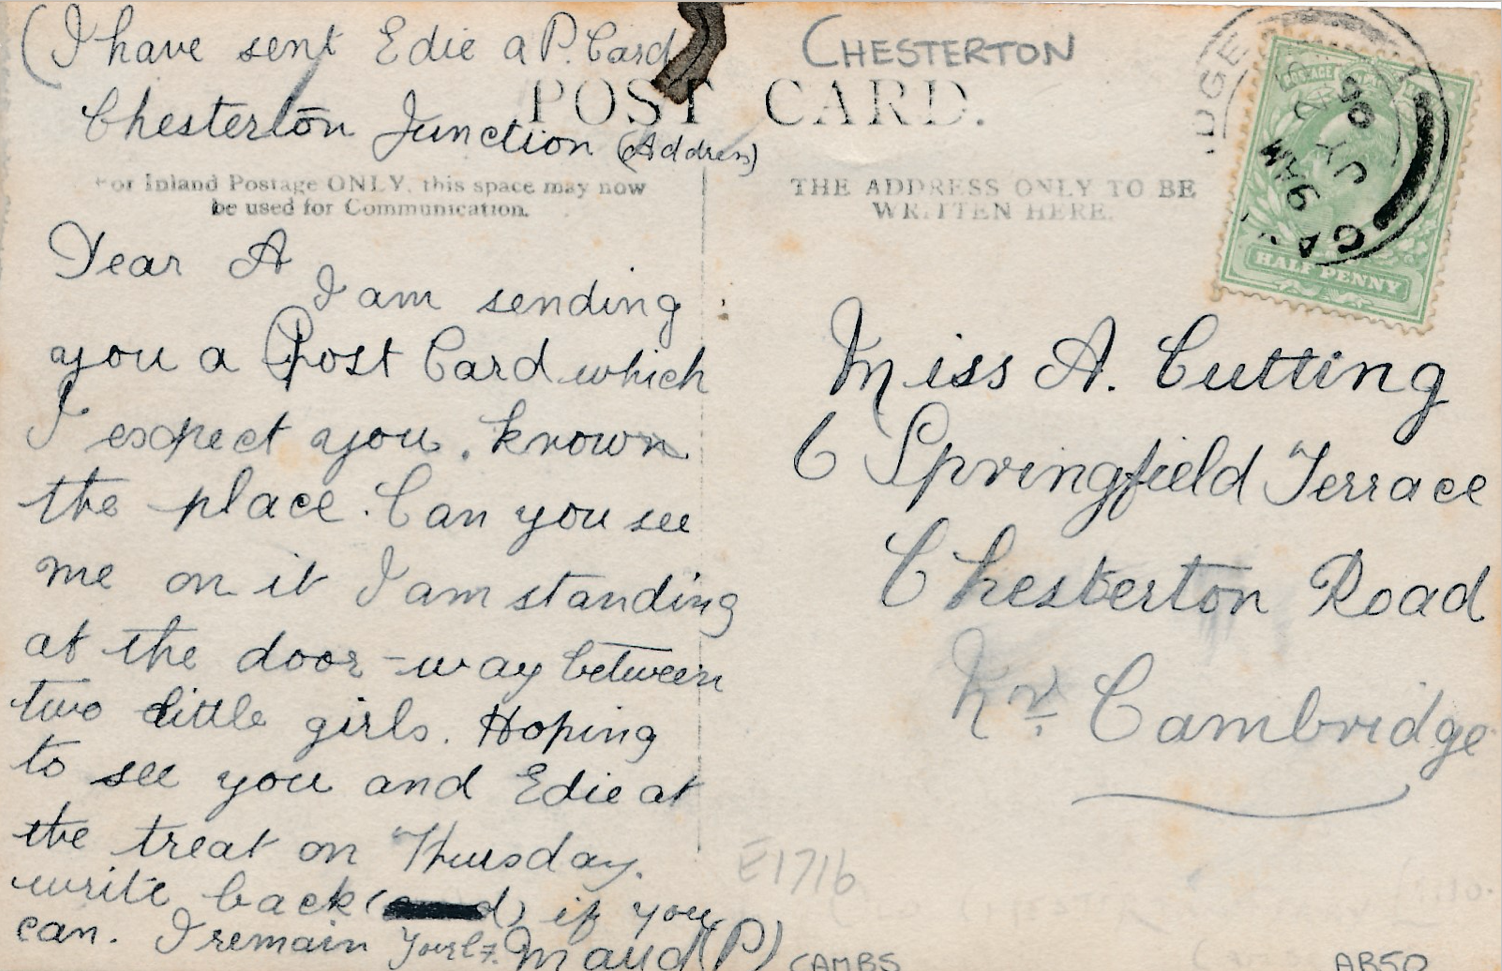 (I have sent Edie a P. Card
Chesterton Junction (Address)
CHESTERTON
POST CARD.
For Inland Postage ONLY, this space may now
be used for Communication.
THE ADDRESS ONLY TO BE
WRITTEN HERE.
HALF PENNY
9 AM
JY
05
Dear A
I am sending
you a Post Card which
I expect you known
the place. Can you see
me on it I am standing
at the door-way between
two little girls. Hoping
to see you and Edie at
the treat on Thursday.
write back if you
can. I remain Yours. Maud (P)
Miss A. Cutting
6 Springfield Terrace
Chesterton Road
Nr. Cambridge
E1716
CAMBS
AB50